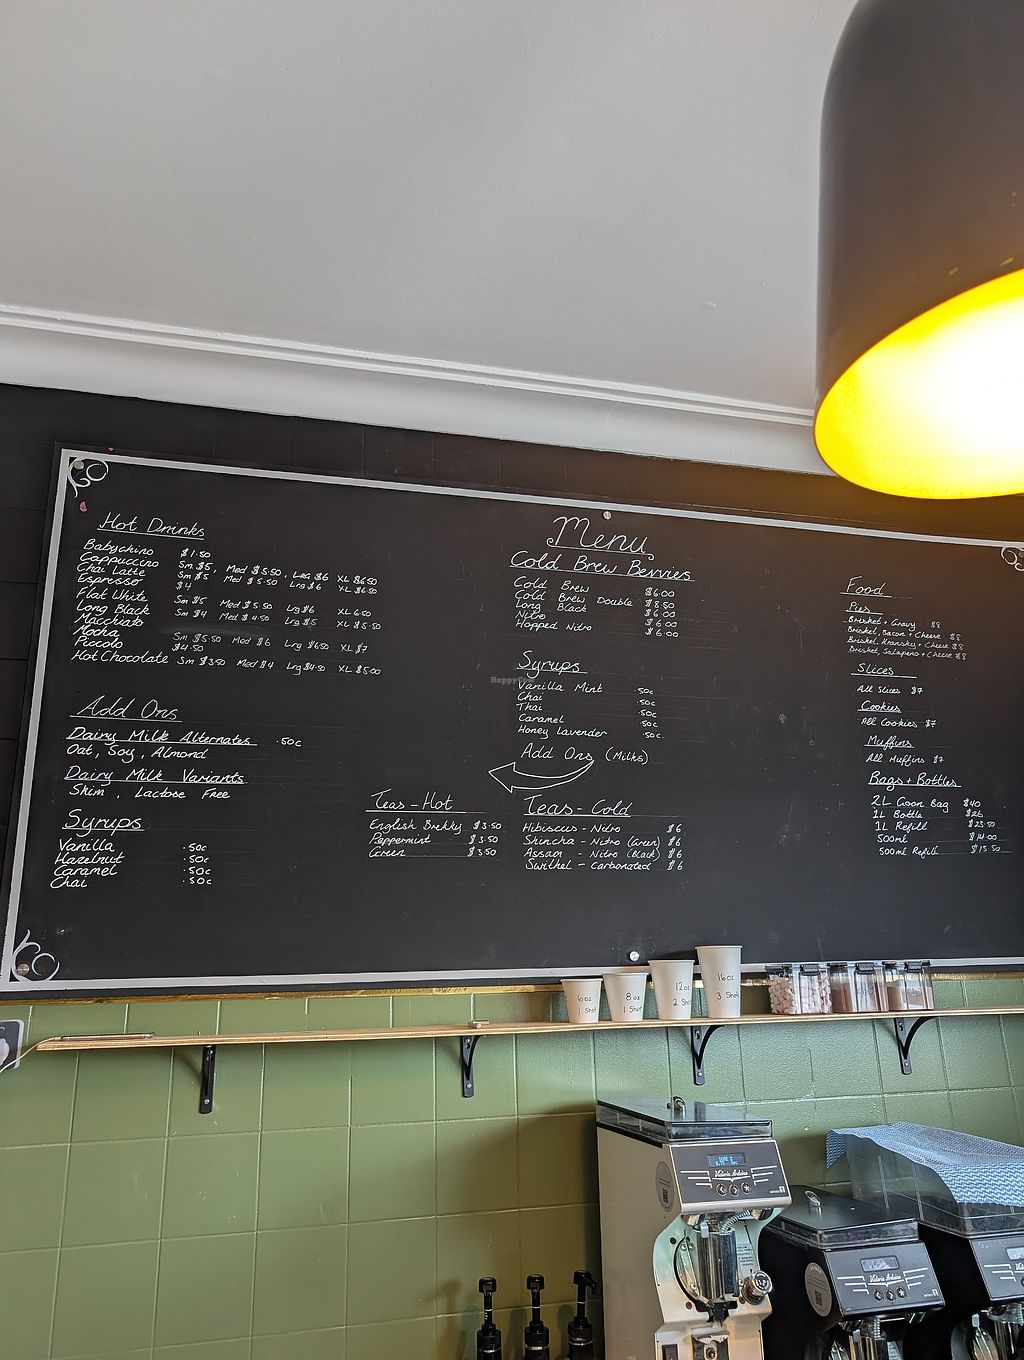 Menu
Hot Drinks
Babychino $1.50
Cappuccino Sm $5, Med $5.50, Lrg $6 XL $6.50
Chai Latte Sm $5 Med $5.50 Lrg $6 XL $6.50
Espresso $4
Flat White Sm $5 Med $5.50 Lrg $6 XL 6.50
Long Black Sm $4 Med $4.50 Lrg $5 XL $5.50
Macchiato
Mocha Sm $5.50 Med $6 Lrg $6.50 XL $7
Piccolo $4.50
Hot Chocolate Sm $3.50 Med $4 Lrg $4.50 XL $5.00
Add Ons
Dairy Milk Alternates .50c
Oat, Soy, Almond
Dairy Milk Variants
Skim, Lactose Free
Syrups
Vanilla .50c
Hazelnut .50c
Caramel .50c
Chai .50c
Teas-Hot
English Brekky $3.50
Peppermint $3.50
Green $3.50
Cold Brew Bevvies
Cold Brew $6.00
Cold Brew Double $8.50
Long Black $6.00
Nitro $6.00
Hopped Nitro $6.00
Syrups
Vanilla Mint .50c
Chai .50c
Thai .50c
Caramel .50c
Honey Lavender .50c
Add Ons (Milks)
Teas-Cold
Hibiscus - Nitro $6
Shincha - Nitro (Green) $6
Assam - Nitro (Black) $6
Switchel - Carbonated $6
Food
Pies
Brisket + Gravy $8
Brisket, Bacon + Cheese $8
Brisket, Kransky + Cheese $8
Brisket, Jalapeno + Cheese $8
Slices
All Slices $7
Cookies
All Cookies $7
Muffins
All Muffins $7
Bags + Bottles
2L Goon Bag $40
1L Bottle $26
1L Refill $23.50
500ml $14.00
500ml Refill $13.50
HappyCow
6oz
1 Shot
8oz
1 Shot
12oz
2 Shot
16oz
3 Shot
Victoria Arduino
Victoria Arduino
Victoria Arduino